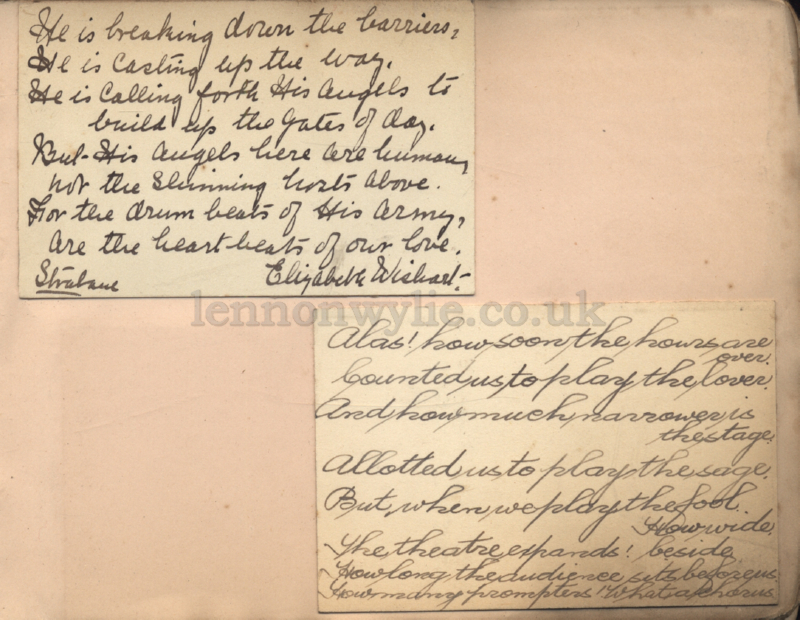 He is breaking down the barriers,
He is Casting up the way.
He is Calling forth His Angels to
build up the Gates of day.
But His Angels here are human,
not the Shinning hosts above.
For the drum beats of His Army,
are the heart-beats of our love.
Strabane Elizabeth Wishart
lennonwylie.co.uk
Alas! how soon the hours are
over.
Counted us to play the lover.
And how much narrower is
the stage.
Allotted us to play the sage.
But, when we play the fool.
How wide.
The theatre expands! beside
How long the audience sits before us
How many prompters! What a chorus